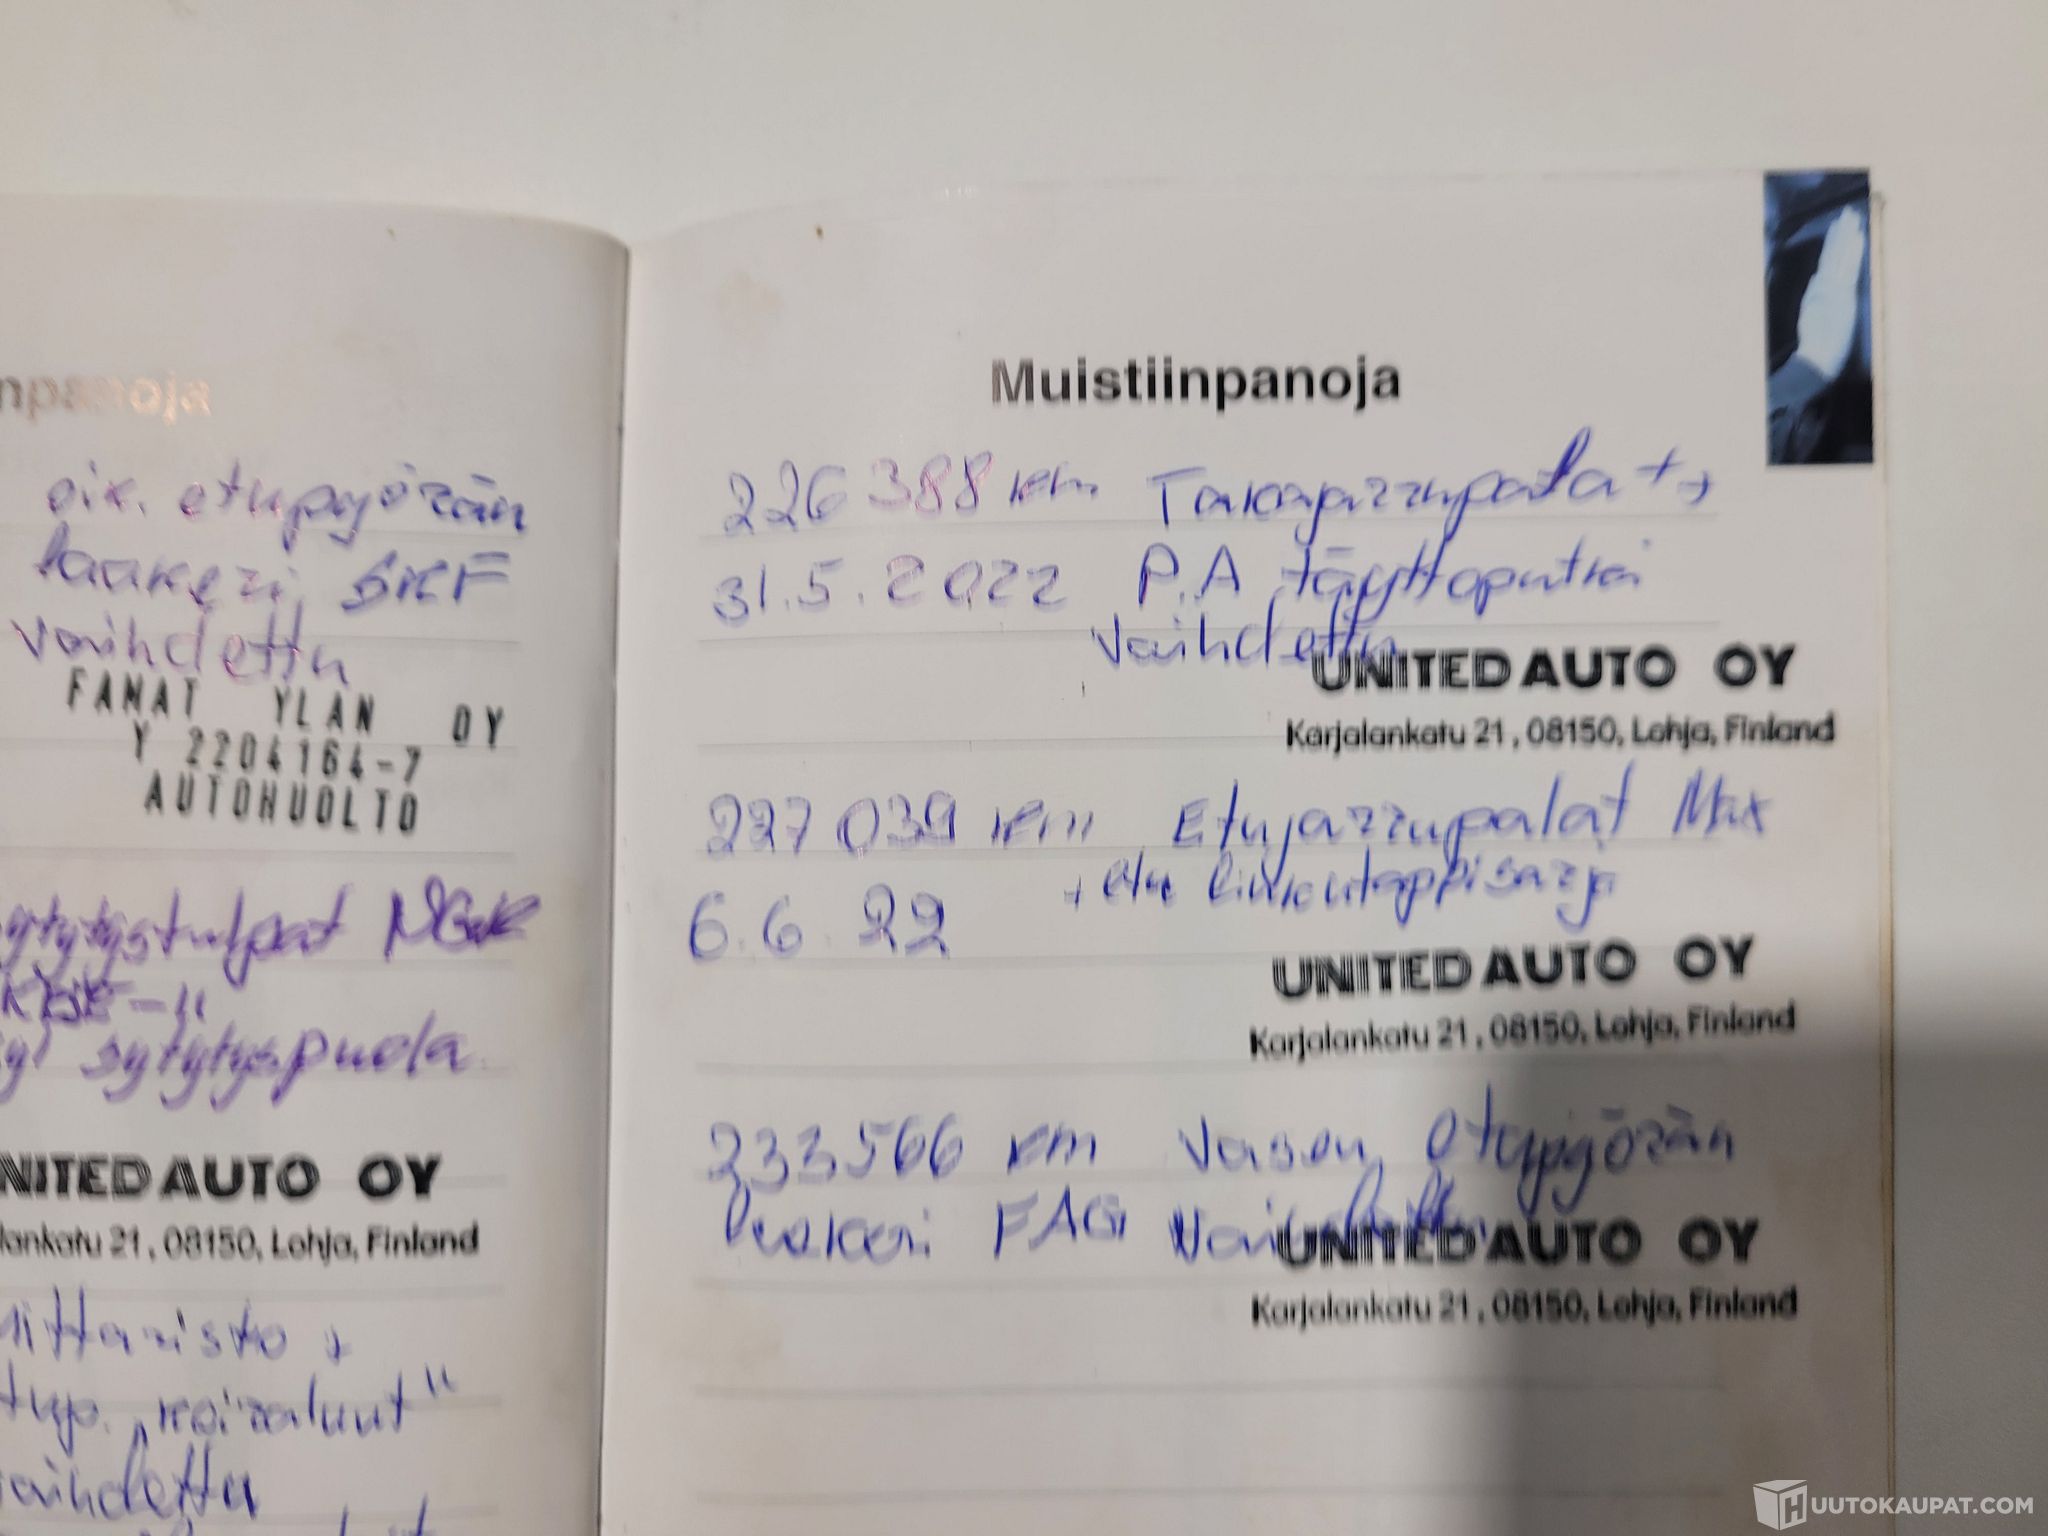 npanoja
oik. etupyörän
laakeri SKF
vaihdettu
FAMAT YLAN OY
Y 2204164-7
AUTOHUOLTO
sytytystulpat NGK
sytytyspuola
NITED AUTO OY
lankatu 21, 08150, Lohja, Finland
ittaristo +
tup. "koiraluut"
aihdettu
Muistiinpanoja
226 388 km Takajarrupalat +
31.5.2022 P.A täyttoputki
vaihdettu
UNITED AUTO OY
Karjalankatu 21, 08150, Lohja, Finland
227 039 km Etujarrupalat
+ etu liukutappisarja
6.6.22
UNITED AUTO OY
Karjalankatu 21, 08150, Lohja, Finland
233 566 km Vasen etupyörän
laakeri FAG vaihdettu
UNITED AUTO OY
Karjalankatu 21, 08150, Lohja, Finland
HUUTOKAUPAT.COM